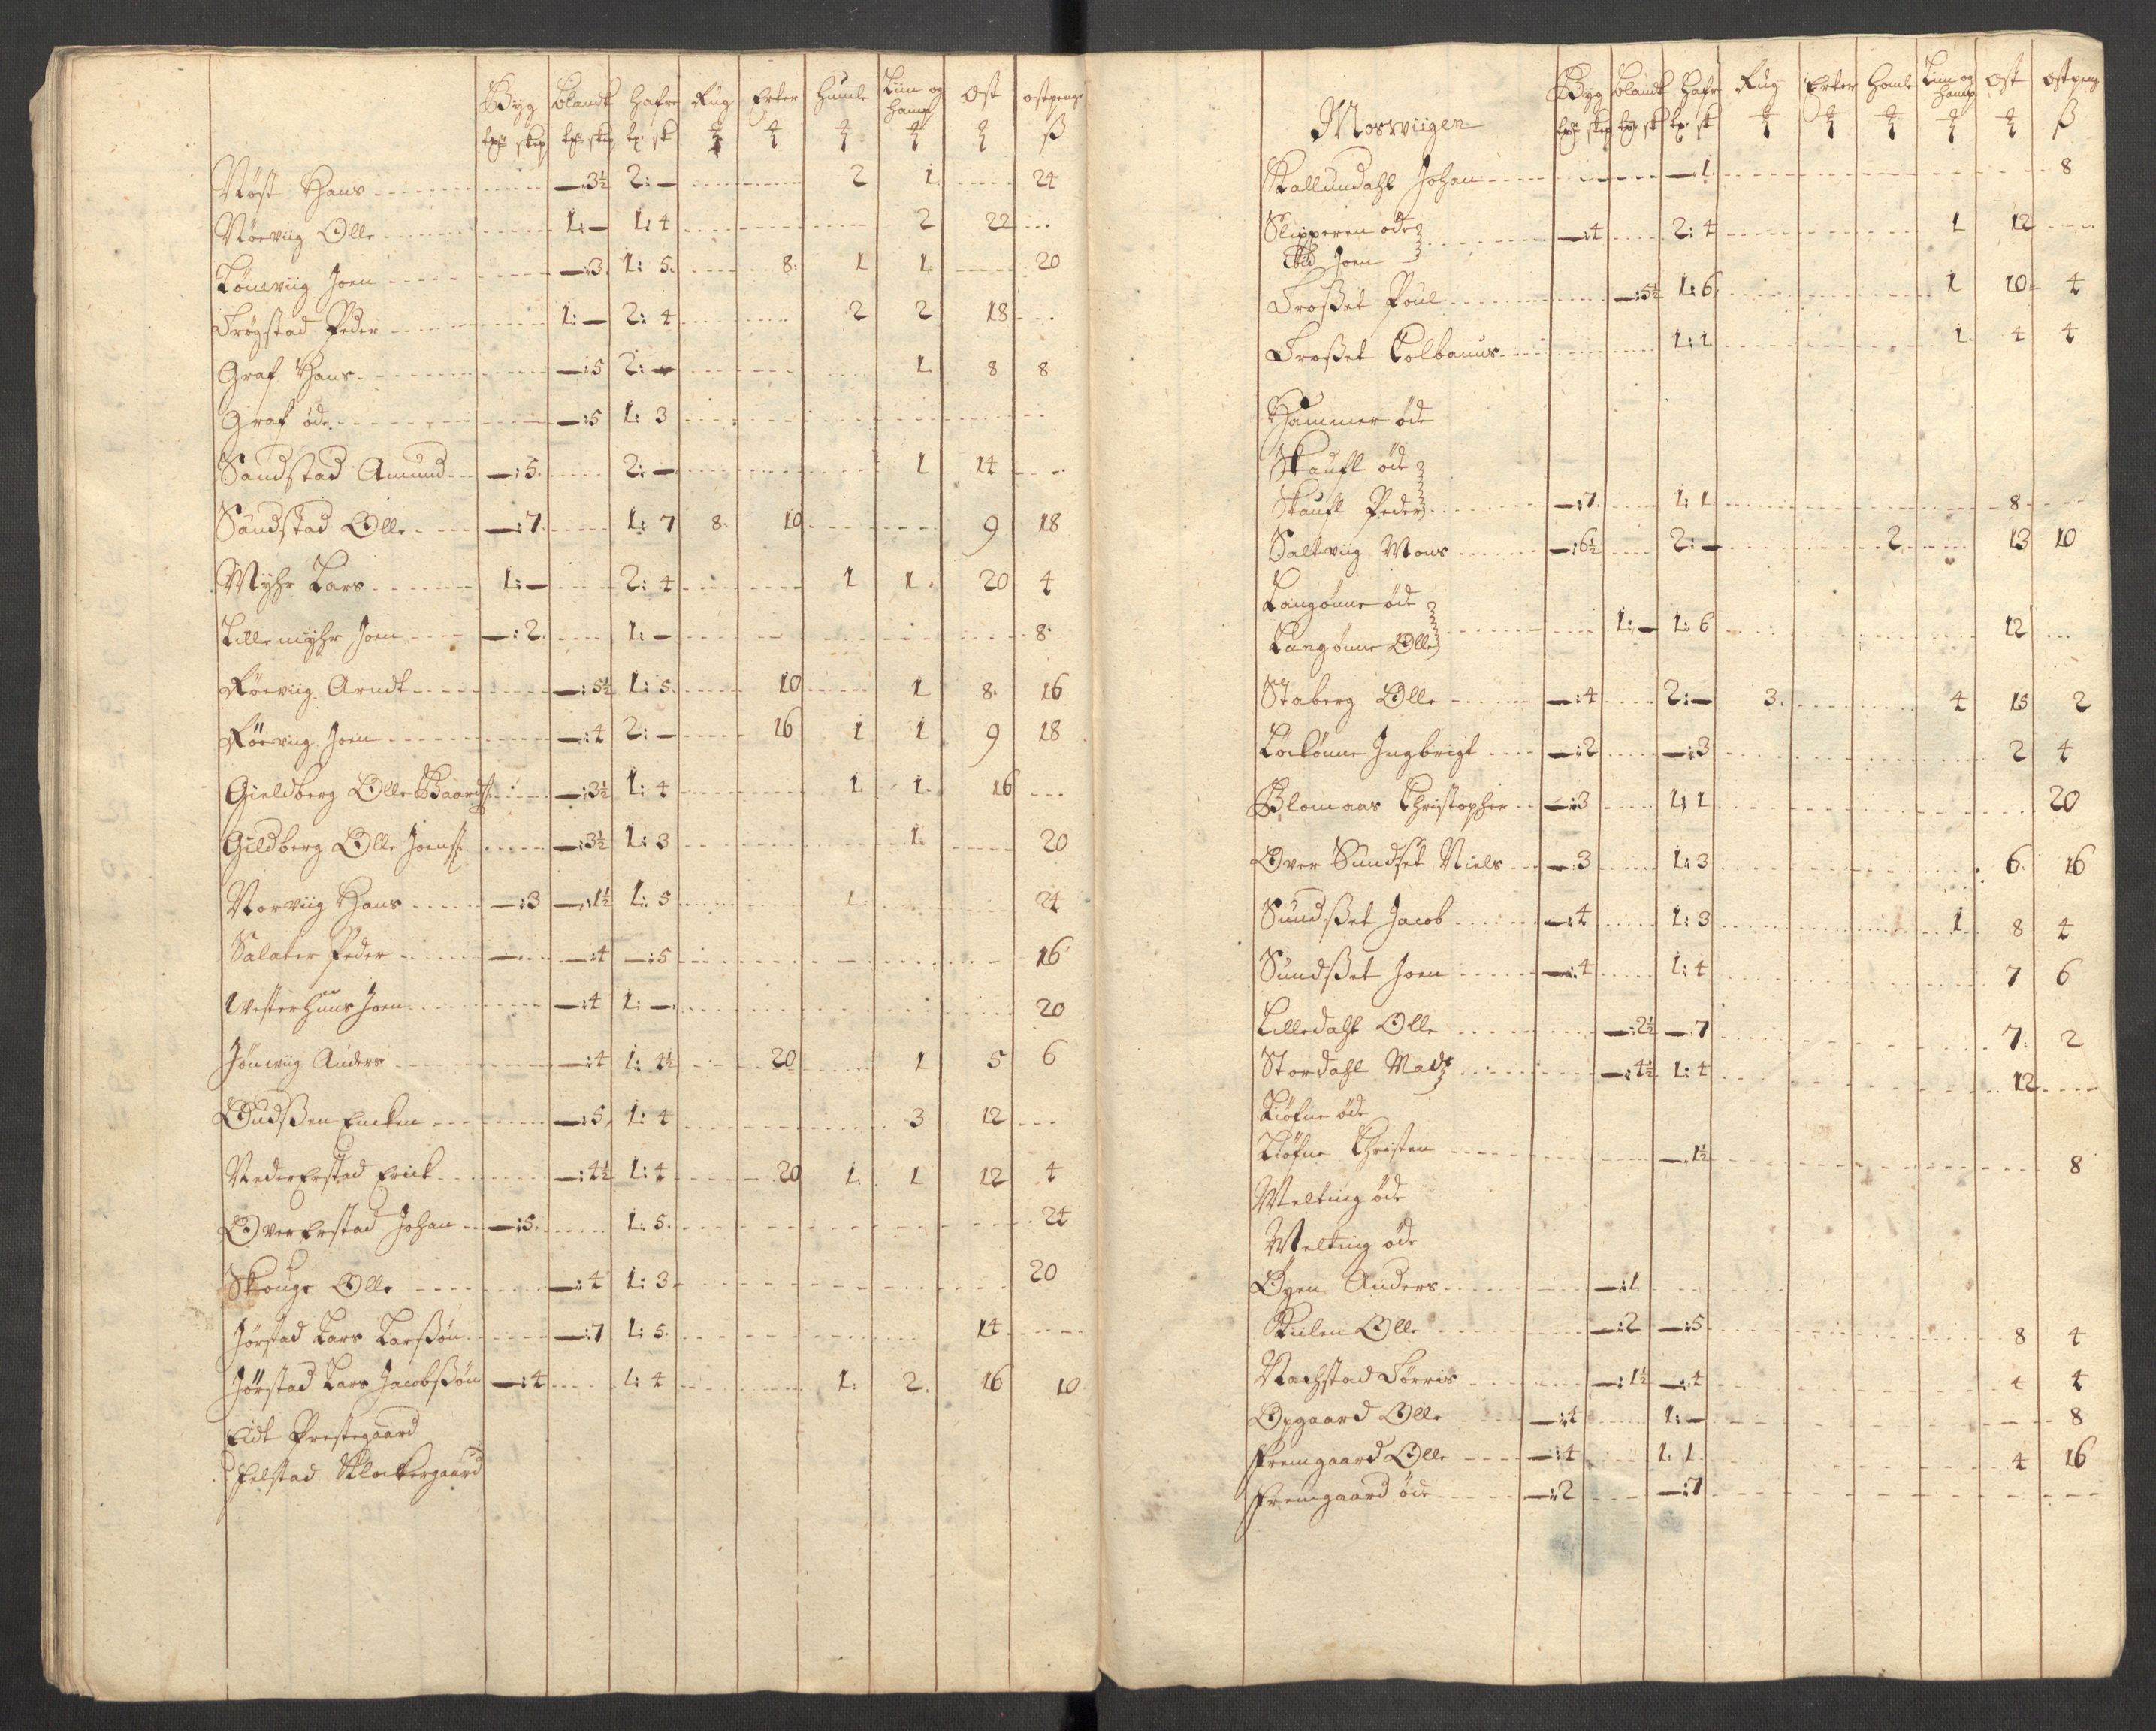 Byg blandt hafre Rug Erter humle Liin og hamp ost ostpenge
skp sk ß
Røst Hans — 3½ 2: — 2 1 24
Røeviig Olle 1: — 1: 4 2 22
Lønviig Joen —: 3 1: 5 8 1 1 20
Frøgstad Peder 1: — 2: 4 2 2 18
Graf Hans —: 5 2: — 1 8 8
Graf øde —: 5 1: 3
Sandstad Amund —: 5 2: — 1 14
Sandstad Olle —: 7 1: 7 8 10 9 18
Myhr Lars 1: — 2: 4 1 1 20 4
Lillemyhr Joen —: 2 1: — 8
Røeviig Arndt —: 5½ 1: 5 10 1 8 16
Røeviig Joen —: 4 2: — 16 1 1 9 18
Gieldberg Olle Baards: —: 3½ 1: 4 1 1 16
Gildberg Olle Joens: —: 3½ 1: 3 1 20
Norviig Hans —: 3 —: 1½ 1: 5 1 24
Salater Peder — —: 4 —: 5 16
Westerhuus Joen —: 4 1: — 20
Jönviig Anders —: 4 1: 4½ 20 1 5 6
Oudßen Encken —: 5 1: 4 3 12
NederErstad Erick —: 4½ 1: 4 20 1 1 12 4
OverErstad Johan —: 5 1: 5 24
Skouge Olle —: 4 1: 3 20
Jørstad Lars Larßøn —: 7 1: 5 14
Jørstad Lars Jacobßøn —: 4 1: 4 1 2 16 10
Eidt Prestegaard
Felstad Klockergaard
Mosviigen Byg blandt hafr Rug Erter Homle Liin og hamp ost ostpeng
ß
Kallundahl Johan —: 1 8
Slipperen øde
Ibid Joen —: 4 2: 4 1 12
Froßet Poul —: 5½ 1: 6 1 10 4
Froßet Colbanus 1: 1 1 4 4
Hammer øde
Skaufl øde
Skaufl Peder —: 7 1: 1 8
Saltviig Mons —: 6½ 2: — 2 13 10
Langønne øde
Langønne Olle 1: — 1: 6 12
Staberg Olle —: 4 2: — 3 4 15 2
Löckönne Ingbrigt —: 2 —: 3 2 4
Blomaas Christopher —: 3 1: 1 20
Over Sundset Niels — 3 1: 3 6 16
Sundßet Jacob —: 4 1: 3 1 8 4
Sundßet Joen —: 4 1: 4 7 6
Lilledahl Olle —: 2½ —: 7 7 2
Stordahl Madz —: 4½ 1: 4 12
Liøfne øde
Liøfne Christen —: 1½ 8
Melting øde
Melting øde
Øyen Anders —: 1
Kiilen Olle —: 2 —: 5 8 4
Rachstad Torris —: 1½ —: 4 4 4
Opgaard Olle —: 4 1: — 8
Fremgaard Olle —: 4 1: 1 4 16
Fremgaard öde —: 2 —: 7